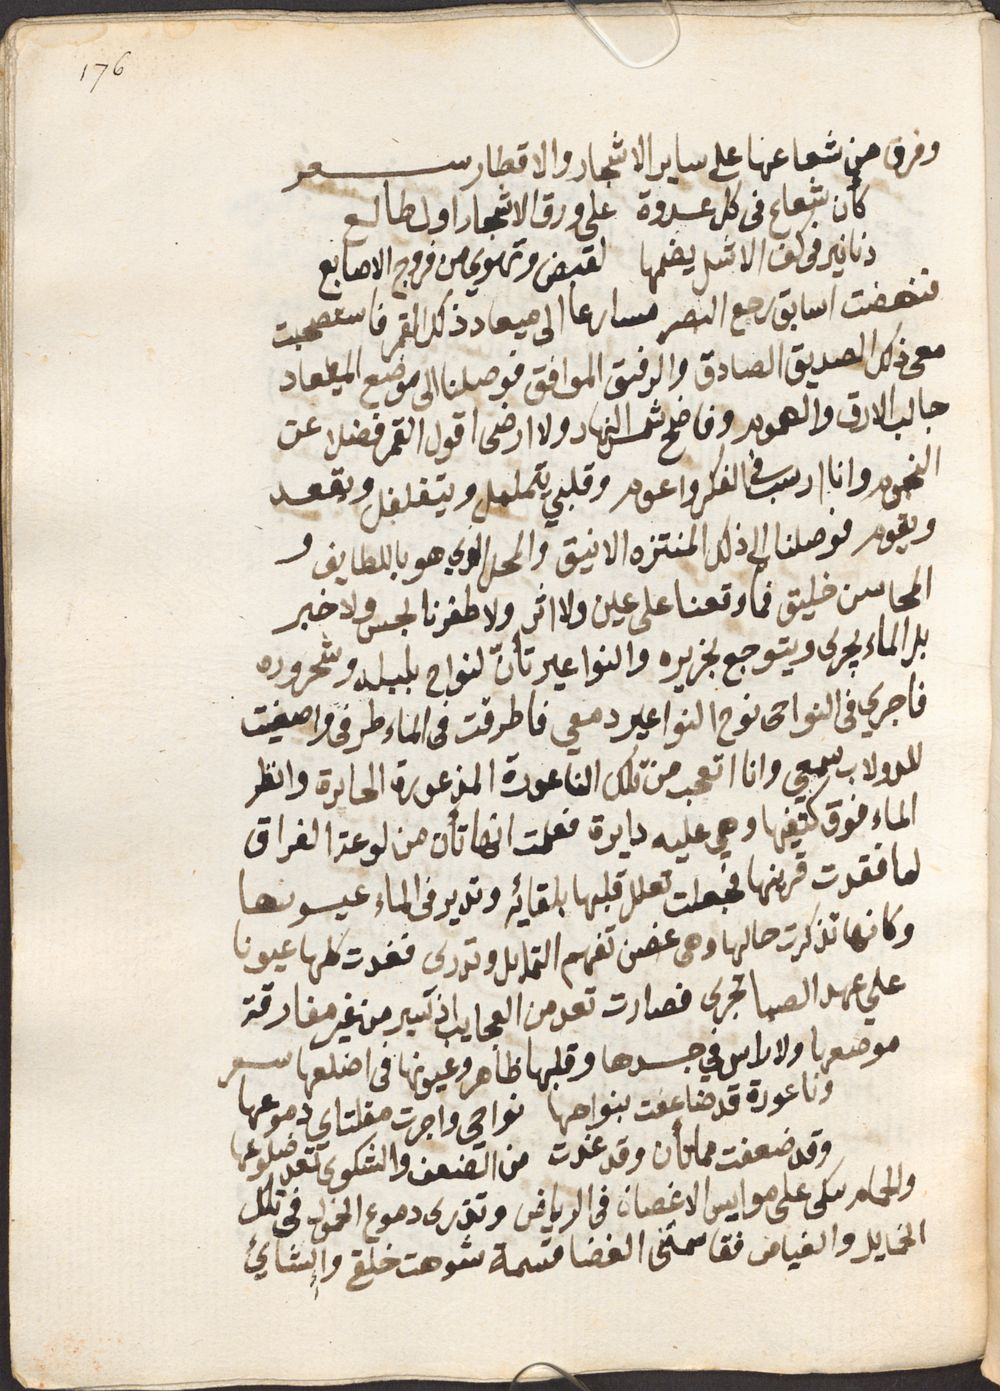 176
وفرق من شعاعها على ساير الاشجار والاقطار شعر
كأن شعاع فى كل غدوة على ورق الاشجار اول طالع
دنانير فى كف الاشل يضمها لقبض وتهوي من فروج الاصابع
فنهضت اسابق رجع البصر مسارعا الى ميعاد ذلك القمر فاستصحبت
معى ذلك الصديق الصادق والرفيق الموافق فوصلنا الى موضع الميعاد
جالب الارق والهموم وفاضح شمس النهار ولا ارضى اقول القمر فضلا عن
النجوم وانا ارسب فى الفكر واعوم وقلبي يتململ ويتغلغل ويقعد
ويقوم فوصلنا الى ذلك المنتزه الانيق والمحل الذي هو باللطايف و
المحاسن خليق فما وقعنا على عين ولا اثر ولا ظفرنا بحس ولا خبر
بل الماء يجرى ويتوجع بخريره والنواعير تأن لنواح بلبله وشحروره
فاجري فى النواحى نوح النواعير دمعي فاطرقت فى الماء طرفى واصغيت
للدولاب سمعي وانا اتعجب من تلك الناعورة المذعورة الحايرة وانظر
الماء فوق كتفيها وهي عليه دايرة فعلمت انها تأن من لوعة الفراق
لما فقدت قرينها فجعلت تعلل قلبها بلقائه وتدير فى الماء عيونها
وكانها تذكرت حالها وهى غصن تفهم التمايل وتدرى فغدت كلها عيونا
على عهد الصبا تجرى فصارت تعد من العجايب اذ تسير من غير مفارقة
موضعها ولا راس في جسدها وقلبها ظاهر وعيونها فى اضلعها شعر
وناعورة قد ضاعفت بنواحها نواحى واجرت مقلتاي دموعها
وقد ضعفت مما تأن وقد غدت من الضعف والشكوى تعد ضلوعها
والحمام يبكى على موايس الاغصان فى الرياض وتذرى دموع فى تلك
الخمايل والغياض فقاسمتنى الغضا قسمة شوهت خلق وانشائ